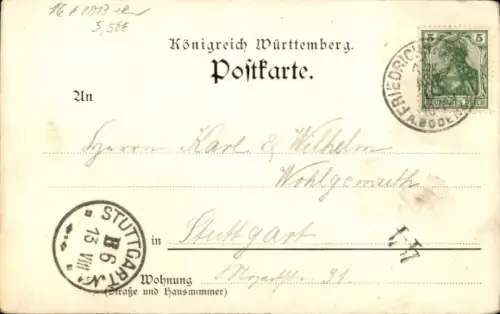 Königreich Württemberg.
Postkarte.
An
Herren Karl & Wilhelm
Wohlgemuth
in Stuttgart
Wohnung
(Straße und Hausnummer)
5 5
FRIEDRICHSH
A. BODEN
STUTTGART
B 6
13 VIII